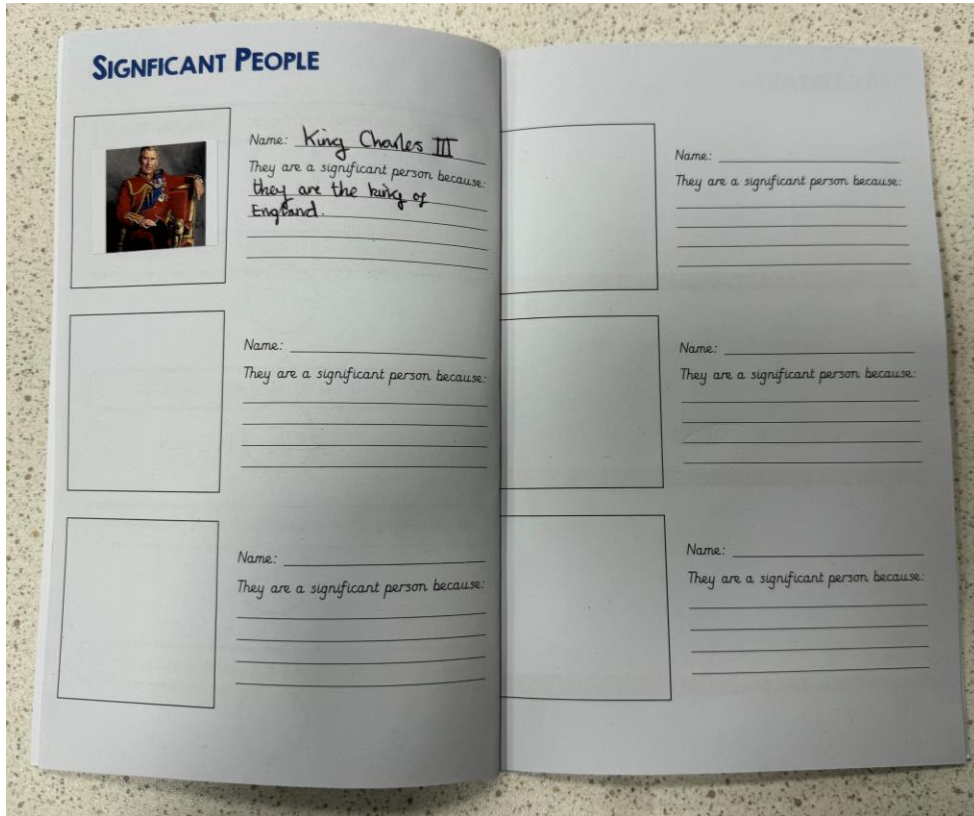 SIGNFICANT PEOPLE
Name: King Charles III
They are a significant person because:
they are the king of
England.
Name:
They are a significant person because:
Name:
They are a significant person because:
Name:
They are a significant person because:
Name:
They are a significant person because:
Name:
They are a significant person because: